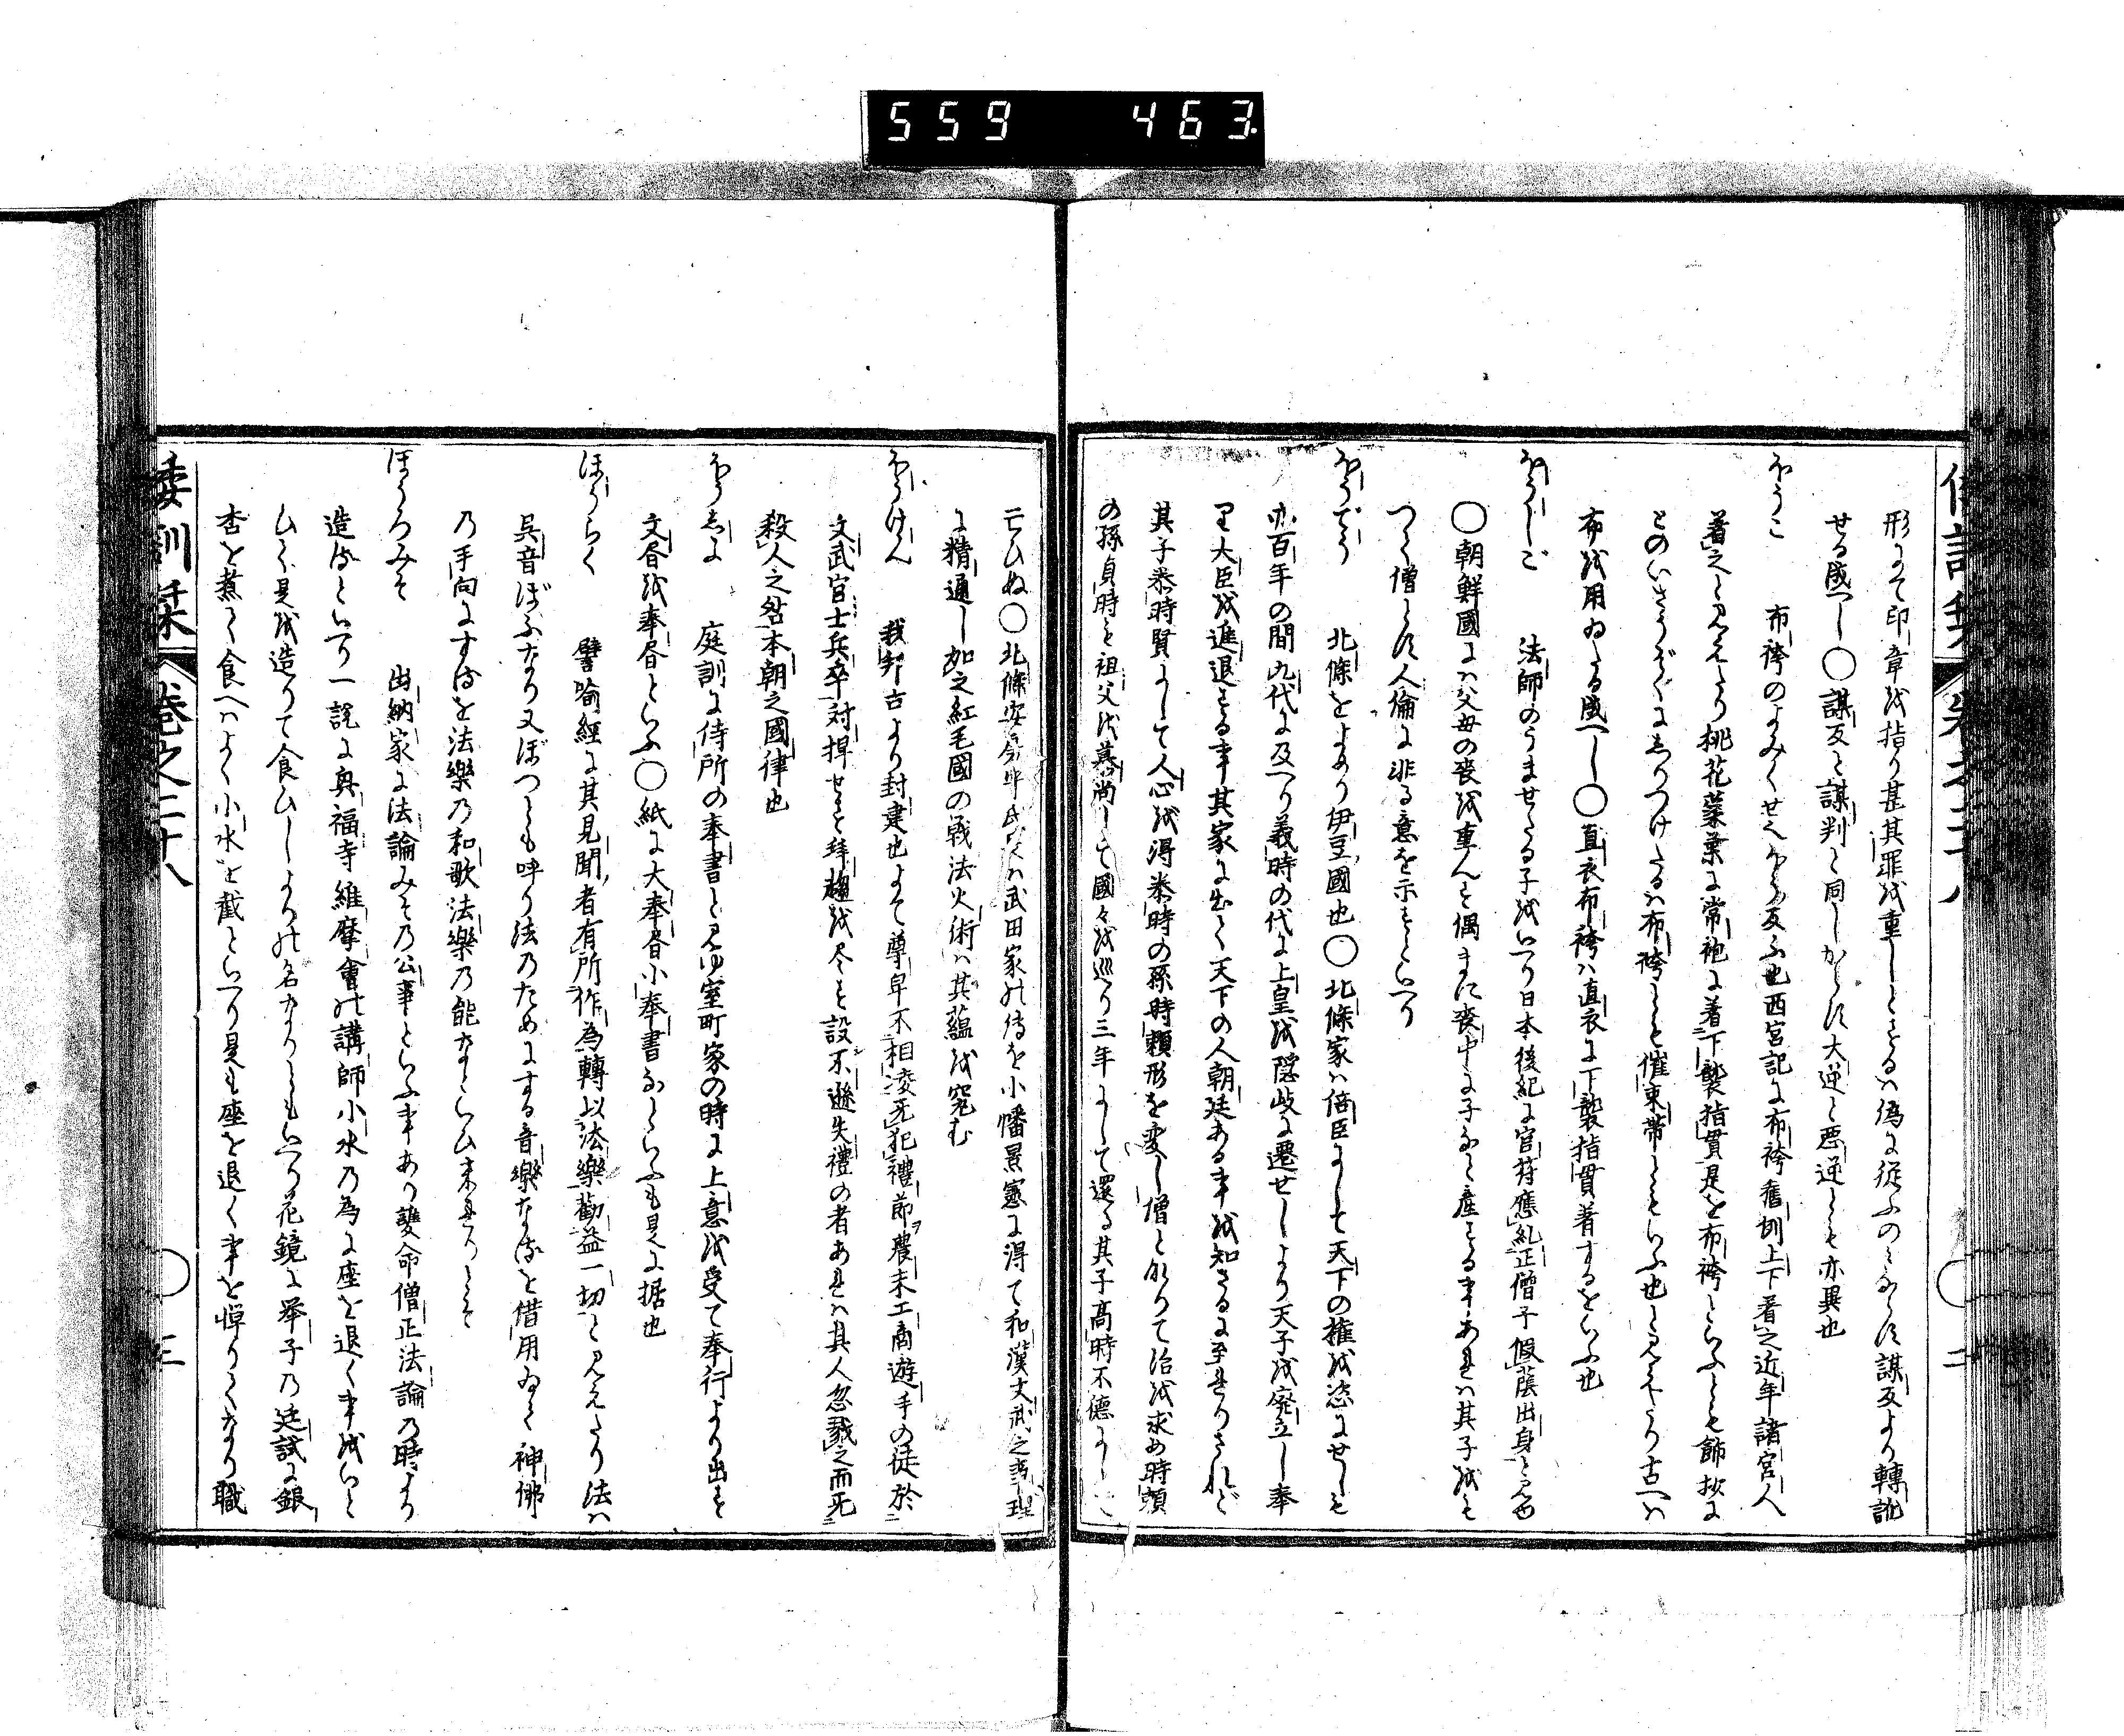 559 463
倭訓栞 卷之二十八 二
形にて印章を指り甚其罪を重しとするは偽に從ふのみならす謀反より轉訛
せる成へし○謀反と謀判と同しからす大逆と惡逆とも亦異也
ほうこ 布袴のよみくせ也西宮記に布袴舊例上下着之近年諸宮人
着之と見えたり桃花蘂葉に常袍に着下襲指貫是を布袴といふとも餝抄に
布を用ゐたる成へし○直衣布袴は直衣に下襲指貫着するをいふ也
ほうしご 法師のうませたる子をいへり日本後紀に官符應糺正僧子假蔭出身と見ゆ
○朝鮮國には父母の喪を重んす偶まに喪中に子なと産する事あれは其子をも
つく僧とす人倫に非る意を示すといへり
ほうでう 北條をよめり伊豆國也○北條家は倍臣にして天下の權を恣にせしも
亦百年の間九代に及へり義時の代に上皇を隠岐に遷せしより天子を廢立し奉
り大臣を進退する事其家に出て天下の人朝廷ある事を知さるに至れりされど
其子泰時賢にして人心を得泰時の孫時頼形を変し僧となりて治を求め時頼
の孫貞時も祖父を慕尚して國々を巡り三年にして還る其子高時不徳にして
亡ひぬ○北條安房守氏長は武田家の傳を小幡景憲に得て和漢文武之事理
に精通し加之紅毛國の戰法火術は其蘊を窮む
ほうけん 我邦古より封建也よて尊卑不相凌死犯禮節農末工商遊手の徒於
文武官士兵卒對捍せす拜趨を尽す設不遜失禮の者あれは其人忽戮之而死
殺人之咎本朝之國律也
ほうしよ 庭訓に侍所の奉書と見ゆ室町家の時に上意を受て奉行より出す
文書を奉書といふ○紙に大奉書小奉書なといふも是に據也
ほうらく 譬喩經に其見聞者有所作為轉以法樂勸益一切と見えたり法は
呉音ぼふなり又ぼつとも呼り法のためにする音樂なるを借用ゐて神佛
の手向にするを法樂の和歌法樂の能なといひ來れりとそ
ほうろみそ 出納家に法論みその公事といふ事あり護命僧正法論の時より
造るといへり一説に興福寺維摩會の講師小水の為に座を退く事をいと
ひて是を造りて食ひしよりの名なりともいへり花鏡に擧子の廷試に銀
杏を煮て食へはよく小水を截といへり是も座を退く事を憚りてなり職
倭訓栞 卷之二十八 三